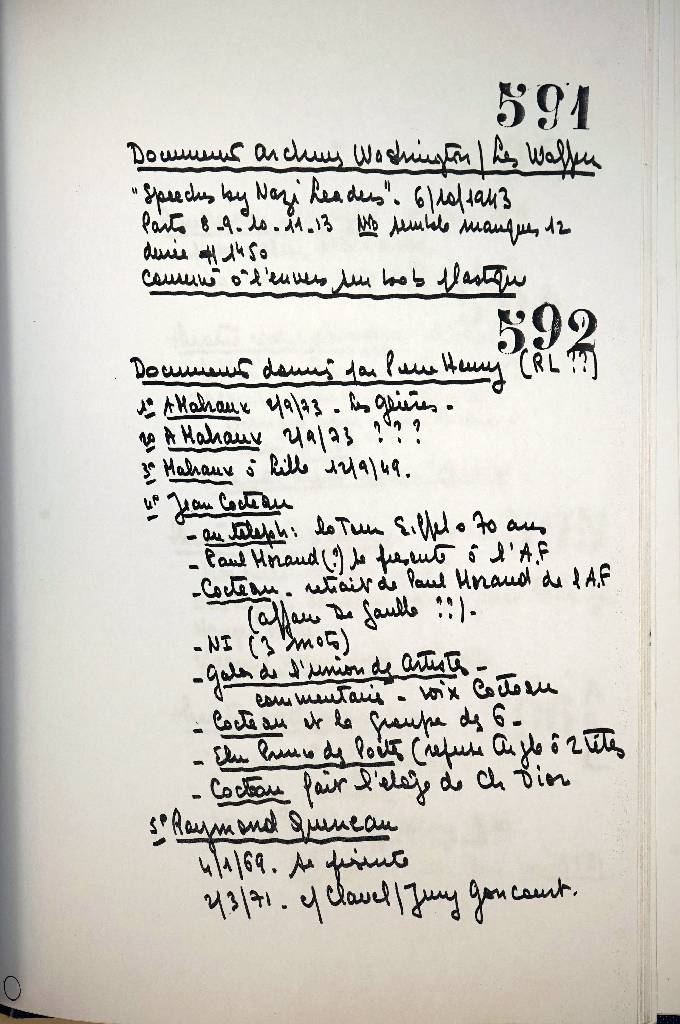 591
Document archives Washington / Les Waffen
"Speeches by Nazi Leaders". 6/10/1943
Parts 8.9.10.11.13 NB semble manquer 12
durée # 1450
Conservé à l'envers sur bob plastique
592
Documents donnés par Pierre Henry (RL ??)
1º A Malraux 2/9/73 - Les glières -
2º A Malraux 2/9/73 ? ? ?
3º Malraux à Lille 12/9/49.
4º Jean Cocteau
- au téléph: la Tour Eiffel a 70 ans
- Paul Morand (?) se présente à l'A.F
- Cocteau - retrait de Paul Morand de l A.F
(affaire De Gaulle ??).
- NI (3 mots)
- Gala de l'union des Artistes -
commentaire - voix Cocteau
- Cocteau et le groupe des 6 -
- Elu Prince des Poètes (refuse Aigle à 2 Têtes
- Cocteau fait l'éloge de Ch Dior
5º Raymond Queneau
4/1/69. se présente
2/3/71. c/ Clavel / Jury Goncourt.